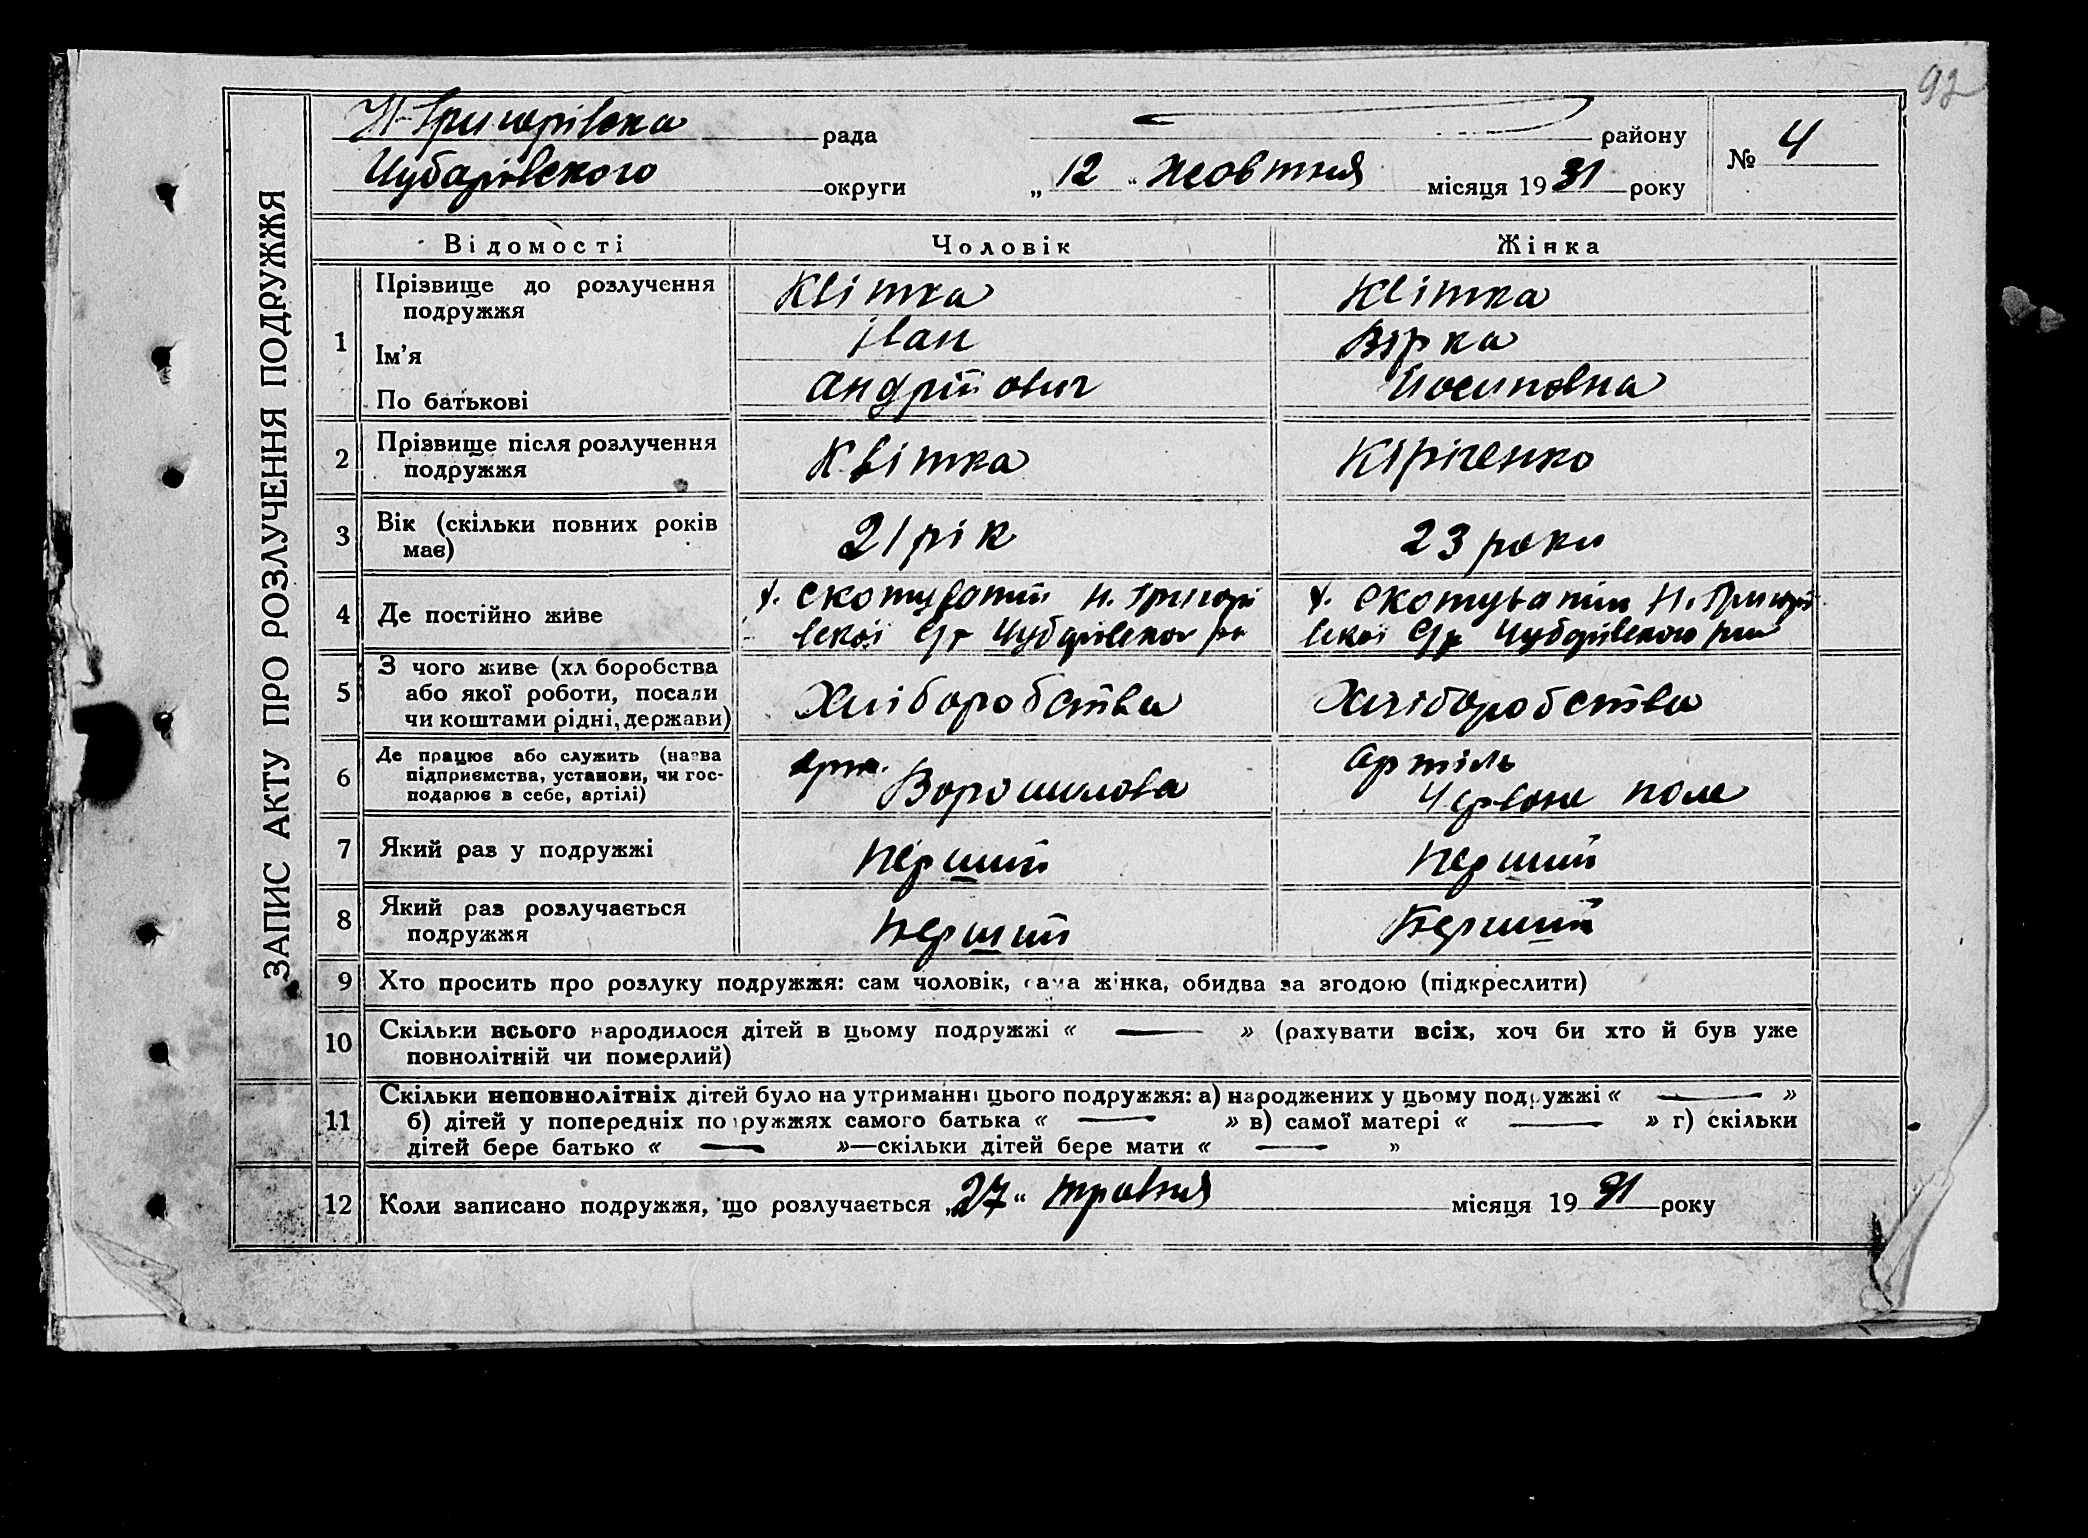 92
Н-Григорівска рада району
Чубарівского округи „12“ жовтня місяця 1931 року
№ 4
ЗАПИС АКТУ ПРО РОЗЛУЧЕННЯ ПОДРУЖЖЯ
Відомості Чоловік Жінка
1 Прізвище до розлучення подружжя Квітка Квітка
Ім’я Іван Вірка
По батькові Андрійович Йосиповна
2 Прізвище після розлучення подружжя Квітка Кіріченко
3 Вік (скільки повних років має) 21 рік 23 роки
4 Де постійно живе
х. Скотуватий Н. Григорі
вскої С/р Чубарівског рн
х. Скотуватий Н. Григорі
вскої С/р Чубарівского рн
5 З чого живе (хліборобства
або якої роботи, посади
чи коштами рідні, держави)
Хліборобства Хліборобства
6 Де працює або служить (назва
підприємства, установи, чи гос-
подарює в себе, артілі)
арт. Ворошилова
артіль
Червоне поле
7 Який раз у подружжі Перший Перший
8 Який раз розлучається
подружжя Перший Перший
9 Хто просить про розлуку подружжя: сам чоловік, сама жінка, обидва за згодою (підкреслити)
10 Скільки всього народилося дітей в цьому подружжі « — » (рахувати всіх, хоч би хто й був уже
повнолітній чи померлий)
11 Скільки неповнолітніх дітей було на утриманні цього подружжя: а) народжених у цьому подружжі « — »
б) дітей у попередніх подружжях самого батька « — » в) самої матері « — » г) скільки
дітей бере батько « — »—скільки дітей бере мати « — »
12 Коли записано подружжя, що розлучається „27“ травня місяця 1931 року